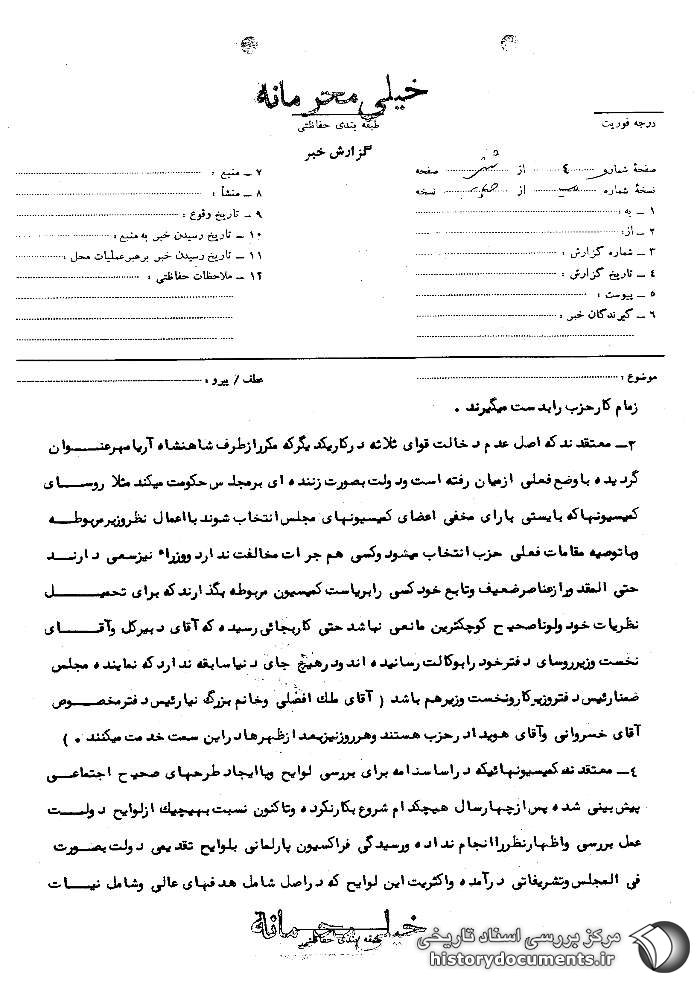 خیلی محرمانه
طبقه بندی حفاظتی
درجه فوریت
گزارش خبر
صفحهٔ شماره ۴ از شش صفحه
نسخهٔ شماره از نسخه
۱ ـ به :
۲ ـ از :
۳ ـ شماره گزارش :
۴ ـ تاریخ گزارش :
۵ ـ پیوست :
۶ ـ گیرندگان خبر :
۷ ـ منبع :
۸ ـ منشأ :
۹ ـ تاریخ وقوع :
۱۰ ـ تاریخ رسیدن خبر به منبع :
۱۱ ـ تاریخ رسیدن خبر برهبر عملیات محل :
۱۲ ـ ملاحظات حفاظتی :
موضوع :
عطف / پیرو :
زمام کار حزب را بدست میگیرند .
۳ـ معتقدند که اصل عدم دخالت قوای ثلاثه در کار یکدیگر که مکرر از طرف شاهنشاه آریامهر عنوان
گردیده با وضع فعلی از میان رفته است و دولت بصورت زننده ای بر مجلس حکومت میکند مثلا روسای
کمیسیونها که بایستی با رای مخفی اعضای کمیسیونهای مجلس انتخاب شوند با اعمال نظر وزیر مربوطه
و با توصیه مقامات فعلی حزب انتخاب میشود وکسی هم جرات مخالفت ندارد ووزراء نیز سعی دارند
حتی المقدور از عناصر ضعیف و تابع خود کسی را بریاست کمیسیون مربوطه بگذارند که برای تحمیل
نظریات خود ولو ناصحیح کوچکترین مانعی نباشد حتی کار بجائی رسیده که آقای دبیرکل وآقای
نخست وزیر روسای دفتر خود را بوکالت رسانیده اند و در هیچ جای دنیا سابقه ندارد که نماینده مجلس
ضمنا رئیس دفتر وزیر کار و نخست وزیر هم باشد ( آقای ملک افضلی وخانم بزرگ نیا رئیس دفتر مخصوص
آقای خسروانی وآقای هویدا در حزب هستند وهر روز نیز بعد از ظهرها در این سمت خدمت میکنند . )
۴ـ معتقدند کمیسیونهائیکه در اساسنامه برای بررسی لوایح ویا ایجاد طرحهای صحیح اجتماعی
پیش بینی شده پس از چهار سال هیچکدام شروع بکار نکرده وتاکنون نسبت بهیچیک از لوایح دولت
عمل بررسی واظهار نظر را انجام نداده ورسیدگی فراکسیون پارلمانی بلوایح تقدیمی دولت بصورت
فی المجلس وتشریفاتی درآمده واکثریت این لوایح که در اصل شامل هدفهای عالی وشامل نیات
خیلی محرمانه
طبقه بندی حفاظتی
مرکز بررسی اسناد تاریخی
historydocuments.ir